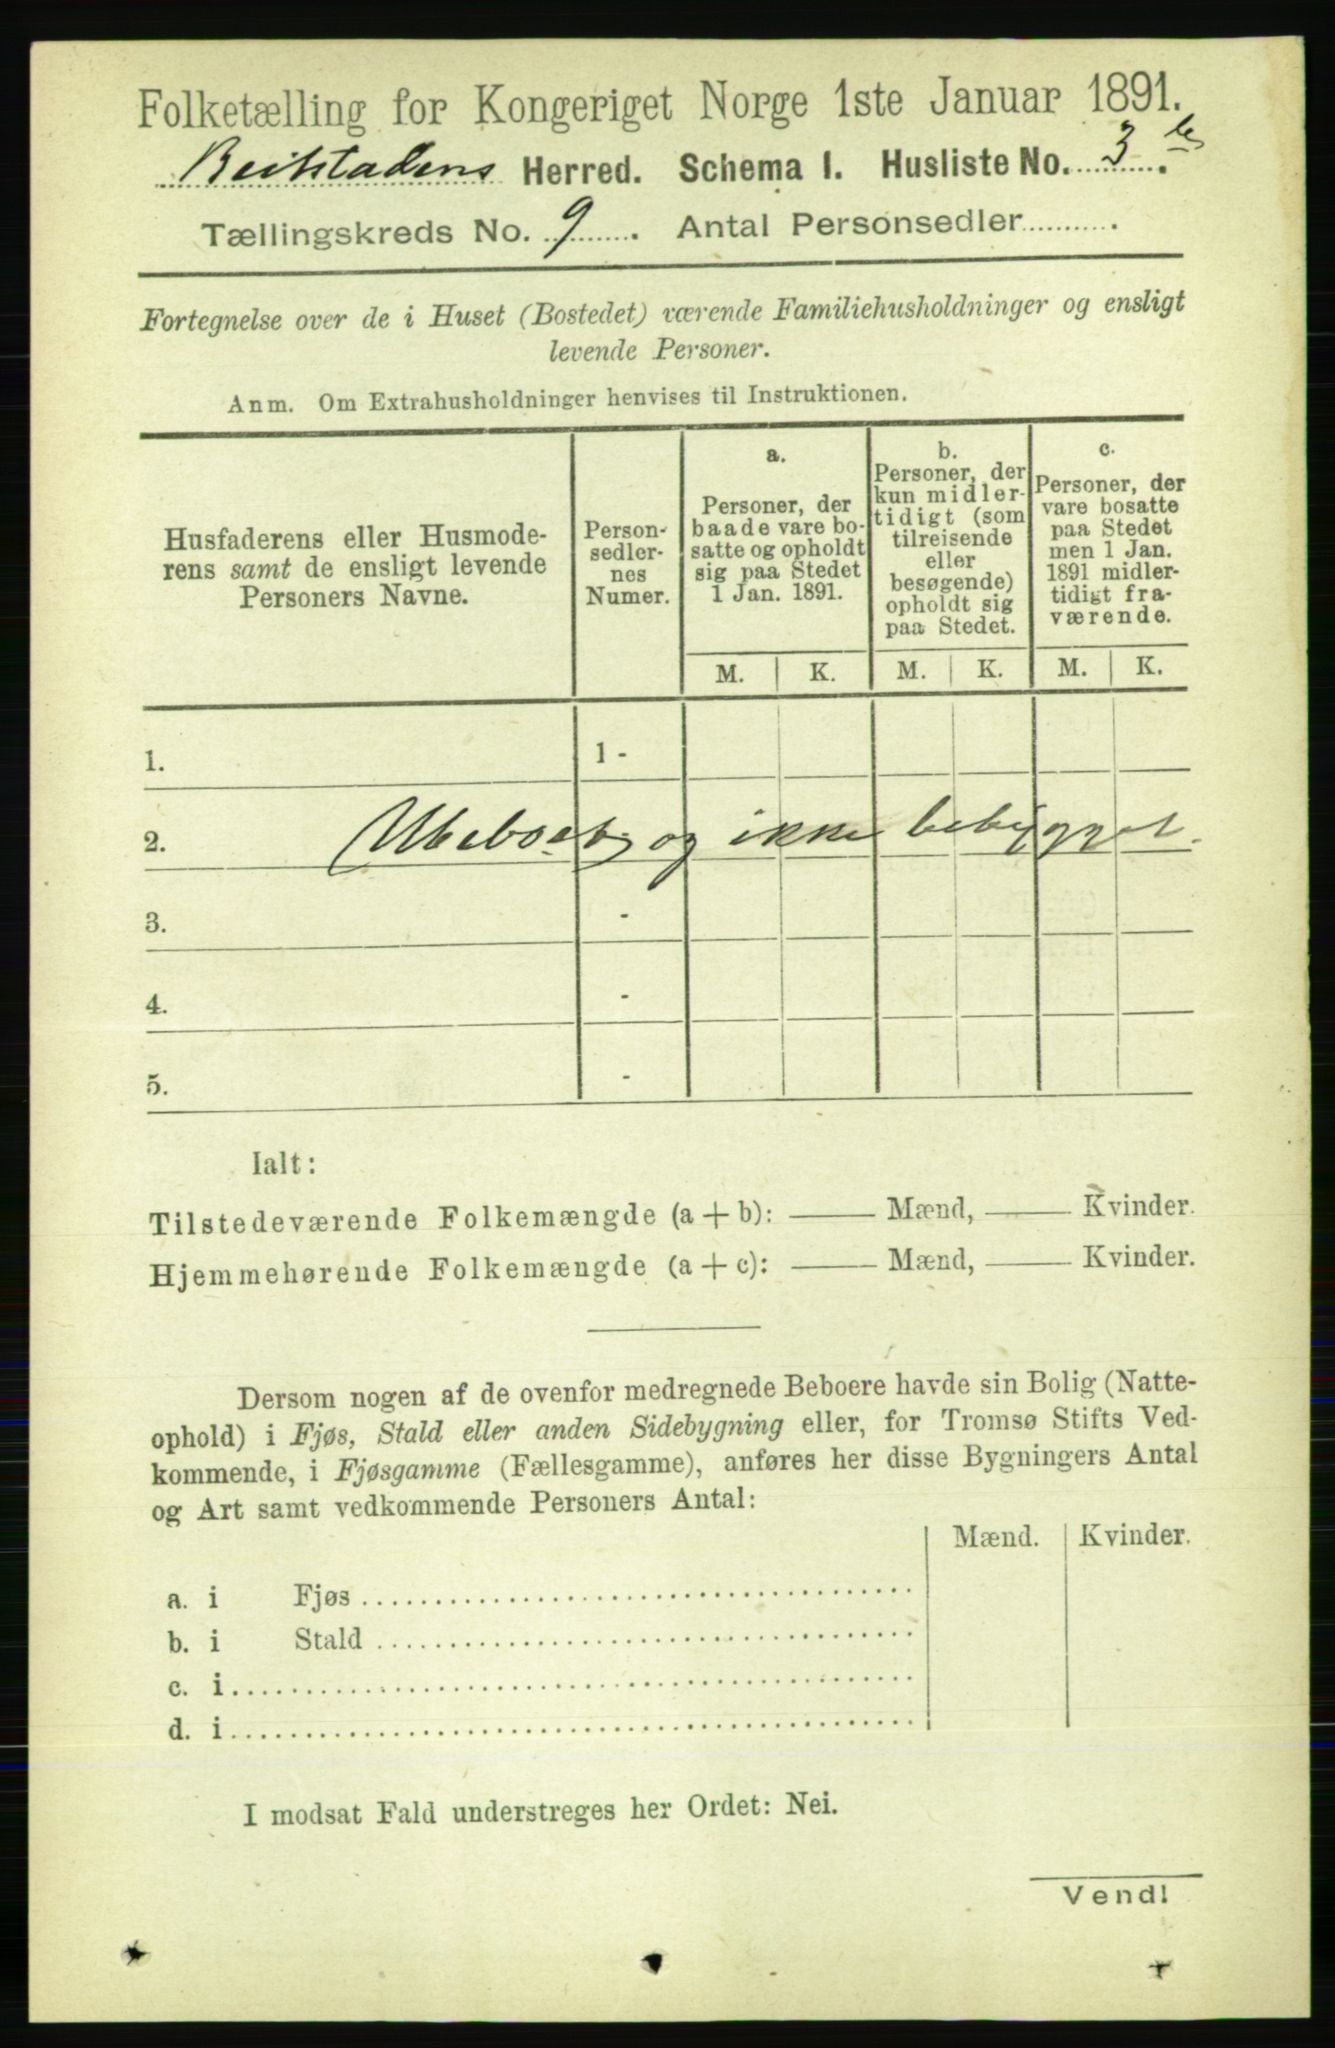 Folketælling for Kongeriget Norge 1ste Januar 1891.
Beitstadens Herred. Schema I. Husliste No. 3
Tællingskreds No. 9. Antal Personsedler
Fortegnelse over de i Huset (Bostedet) værende Familiehusholdninger og ensligt
levende Personer.
Anm. Om Extrahusholdninger henvises til Instruktionen.
Husfaderens eller Husmode-
rens samt de ensligt levende
Personers Navne.
Person-
sedler-
nes
Numer.
a.
Personer, der
baade vare bo-
satte og opholdt
sig paa Stedet
1 Jan. 1891.
b.
Personer, der
kun midler-
tidigt (som
tilreisende
eller
besøgende)
opholdt sig
paa Stedet.
c.
Personer, der
vare bosatte
paa Stedet
men 1 Jan.
1891 midler-
tidigt fra-
værende.
M. K. M. K. M. K.
1. 1 -
2. Ubeboet og ikke bebygget.
3. -
4. -
5. -
Ialt:
Tilstedeværende Folkemængde (a + b): —— Mænd, —— Kvinder.
Hjemmehørende Folkemængde (a + c): —— Mænd, —— Kvinder.
Dersom nogen af de ovenfor medregnede Beboere havde sin Bolig (Natte-
ophold) i Fjøs, Stald eller anden Sidebygning eller, for Tromsø Stifts Ved-
kommende, i Fjøsgamme (Fællesgamme), anføres her disse Bygningers Antal
og Art samt vedkommende Personers Antal:
Mænd. Kvinder.
a. i Fjøs
b. i Stald
c. i
d. i
I modsat Fald understreges her Ordet: Nei.
Vend!